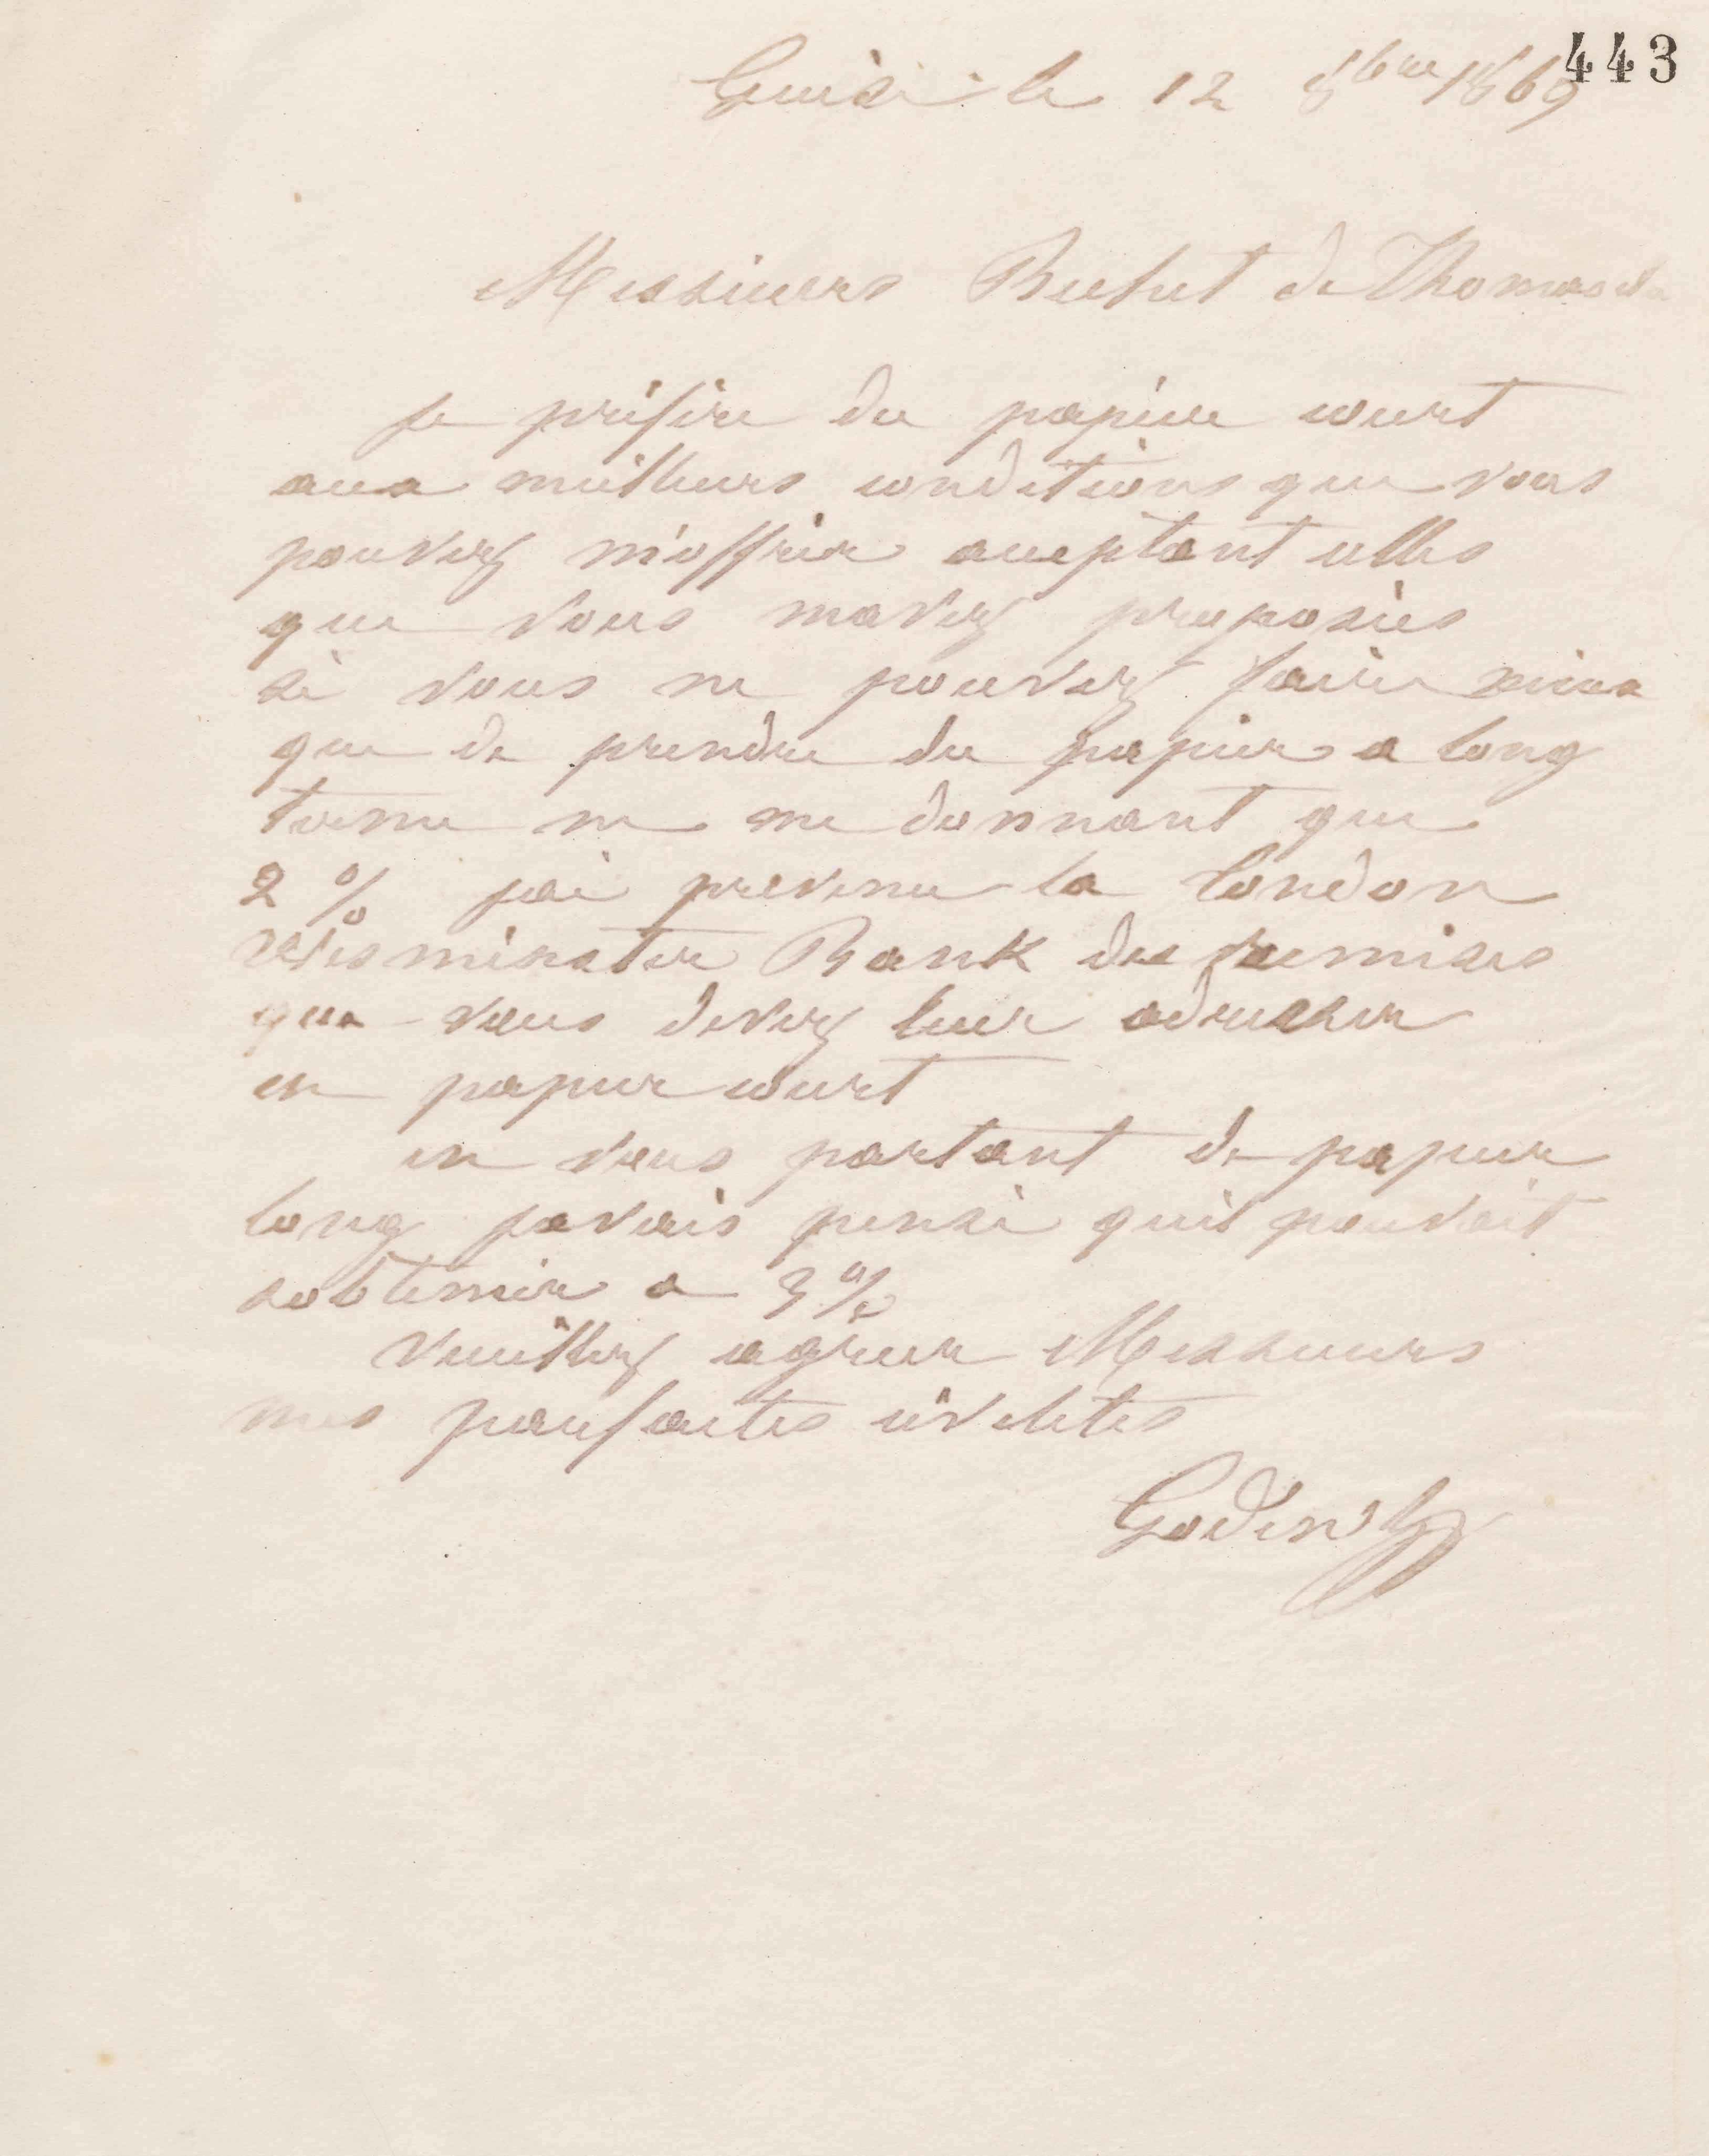 443
Guise le 12 8bre 1869
Messieurs Bechet de Thomas &
je préfère du papier court
aux meilleurs conditions que vous
pouvez m'offrir acceptant celles
que vous mavez proposées
si vous ne pouvez faire mieux
que de prendre du papier a long
terme ne me donnant que
2 % jai prevenu la London
Wesminster Bank des remises
que vous devez leur adresser
en papier court
en vous parlant de papier
long javais pensé quil pouvait
sobtenir a 3 %
Veuillez agréer Messieurs
mes parfaites civilités
Godin